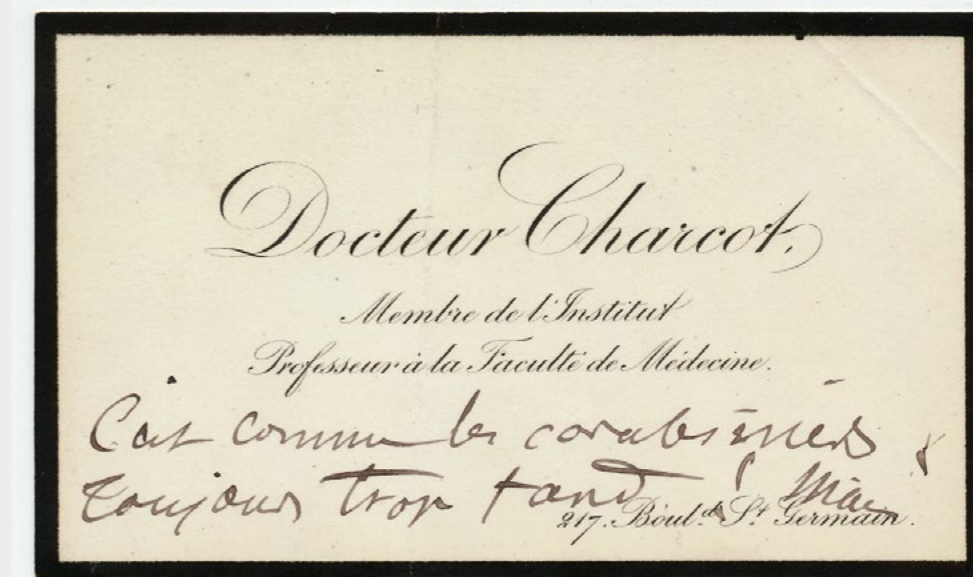 Docteur Charcot,
Membre de l'Institut
Professeur à la Faculté de Médecine.
C'est comme les carabiniers
toujours trop tard ! Mais
217. Boul.d St Germain.